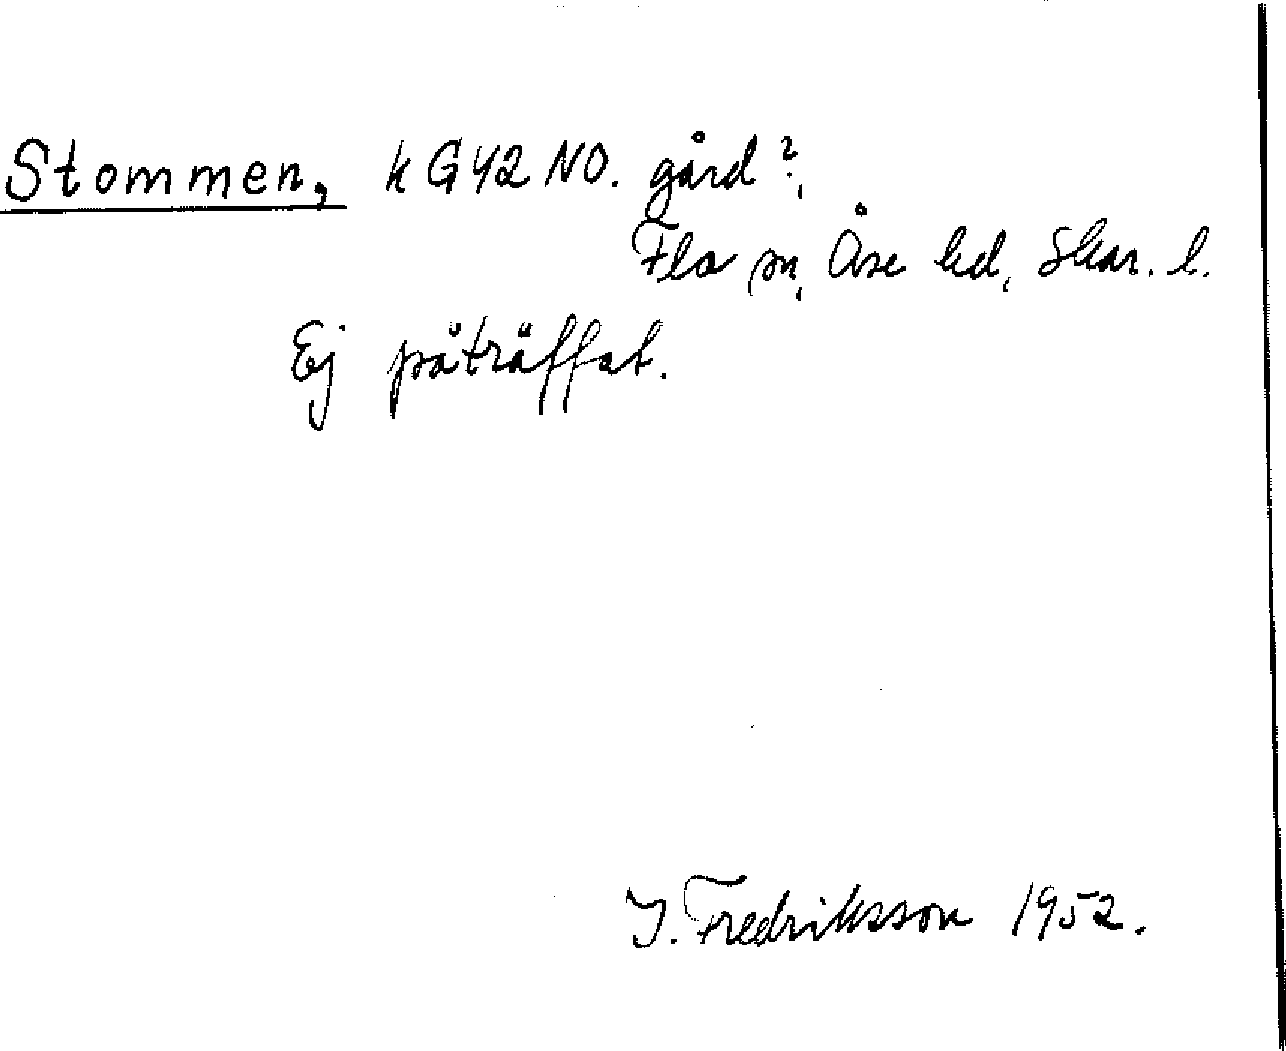 Stommen, k G42 NO. gård?,
Flo sn, Åse hd, Skar. l.
Ej påträffat.
I. Fredriksson 1952.